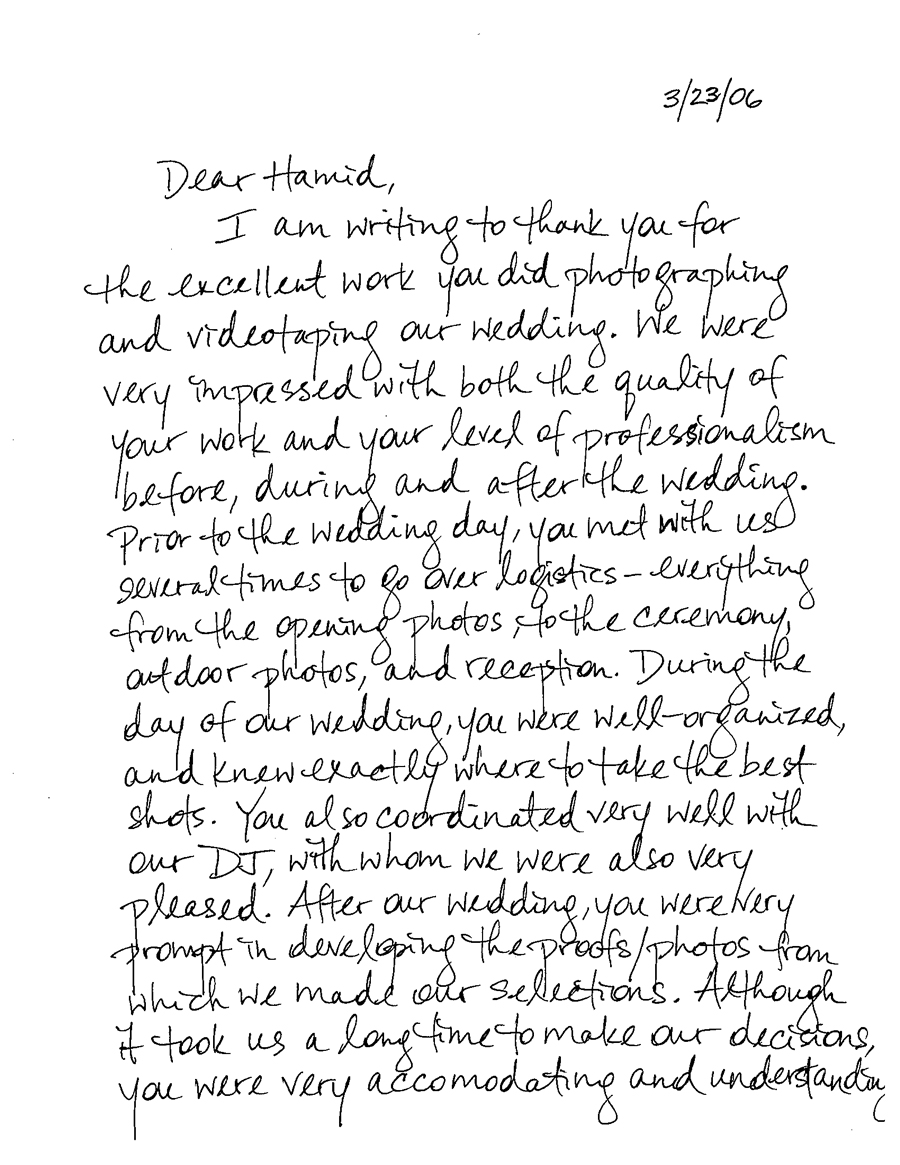 3/23/06
Dear Hamid,
I am writing to thank you for
the excellent work you did photographing
and videotaping our wedding. We were
very impressed with both the quality of
your work and your level of professionalism
before, during and after the wedding.
Prior to the wedding day, you met with us
several times to go over logistics – everything
from the opening photos, to the ceremony,
outdoor photos, and reception. During the
day of our wedding, you were well-organized,
and knew exactly where to take the best
shots. You also coordinated very well with
our DJ, with whom we were also very
pleased. After our wedding, you were very
prompt in developing the proofs/photos from
which we made our selections. Although
it took us a long time to make our decisions,
you were very accomodating and understanding